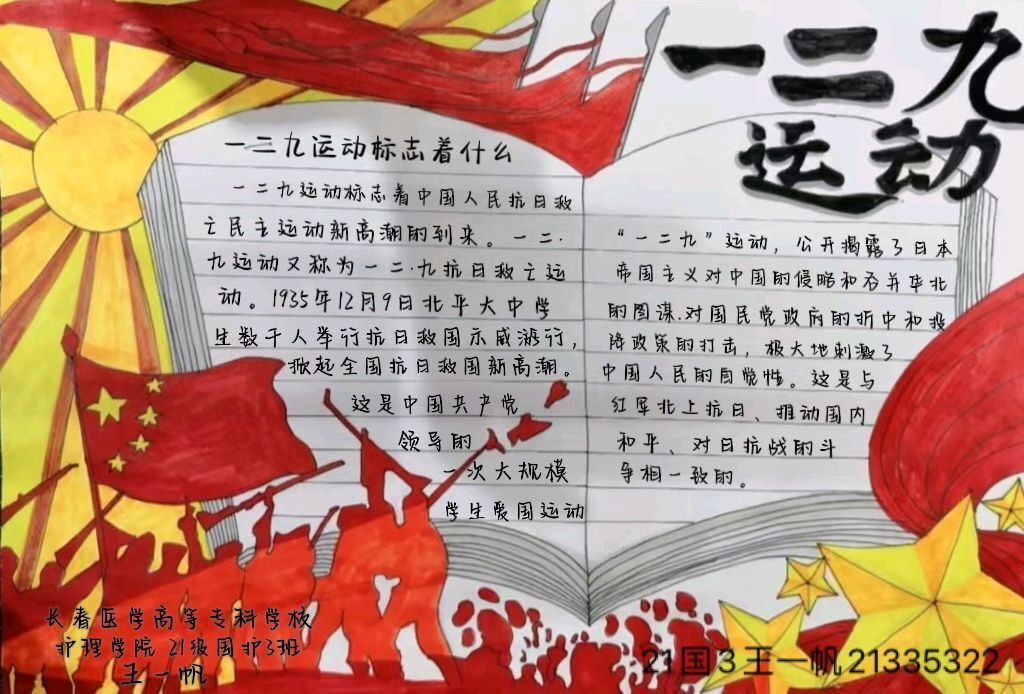 一二九
运动
一二九运动标志着什么
一二九运动标志着中国人民抗日救
亡民主运动新高潮的到来。一二·
九运动又称为一二·九抗日救亡运
动。1935年12月9日北平大中学
生数千人举行抗日救国示威游行，
掀起全国抗日救国新高潮。
这是中国共产党
领导的
一次大规模
学生爱国运动
“一二九”运动，公开揭露了日本
帝国主义对中国的侵略和吞并华北
的图谋.对国民党政府的折中和投
降政策的打击，极大地刺激了
中国人民的自觉性。这是与
红军北上抗日、推动国内
和平、对日抗战的斗
争相一致的。
长春医学高等专科学校
护理学院 21级国护3班
王一帆
21国3王一帆21335322